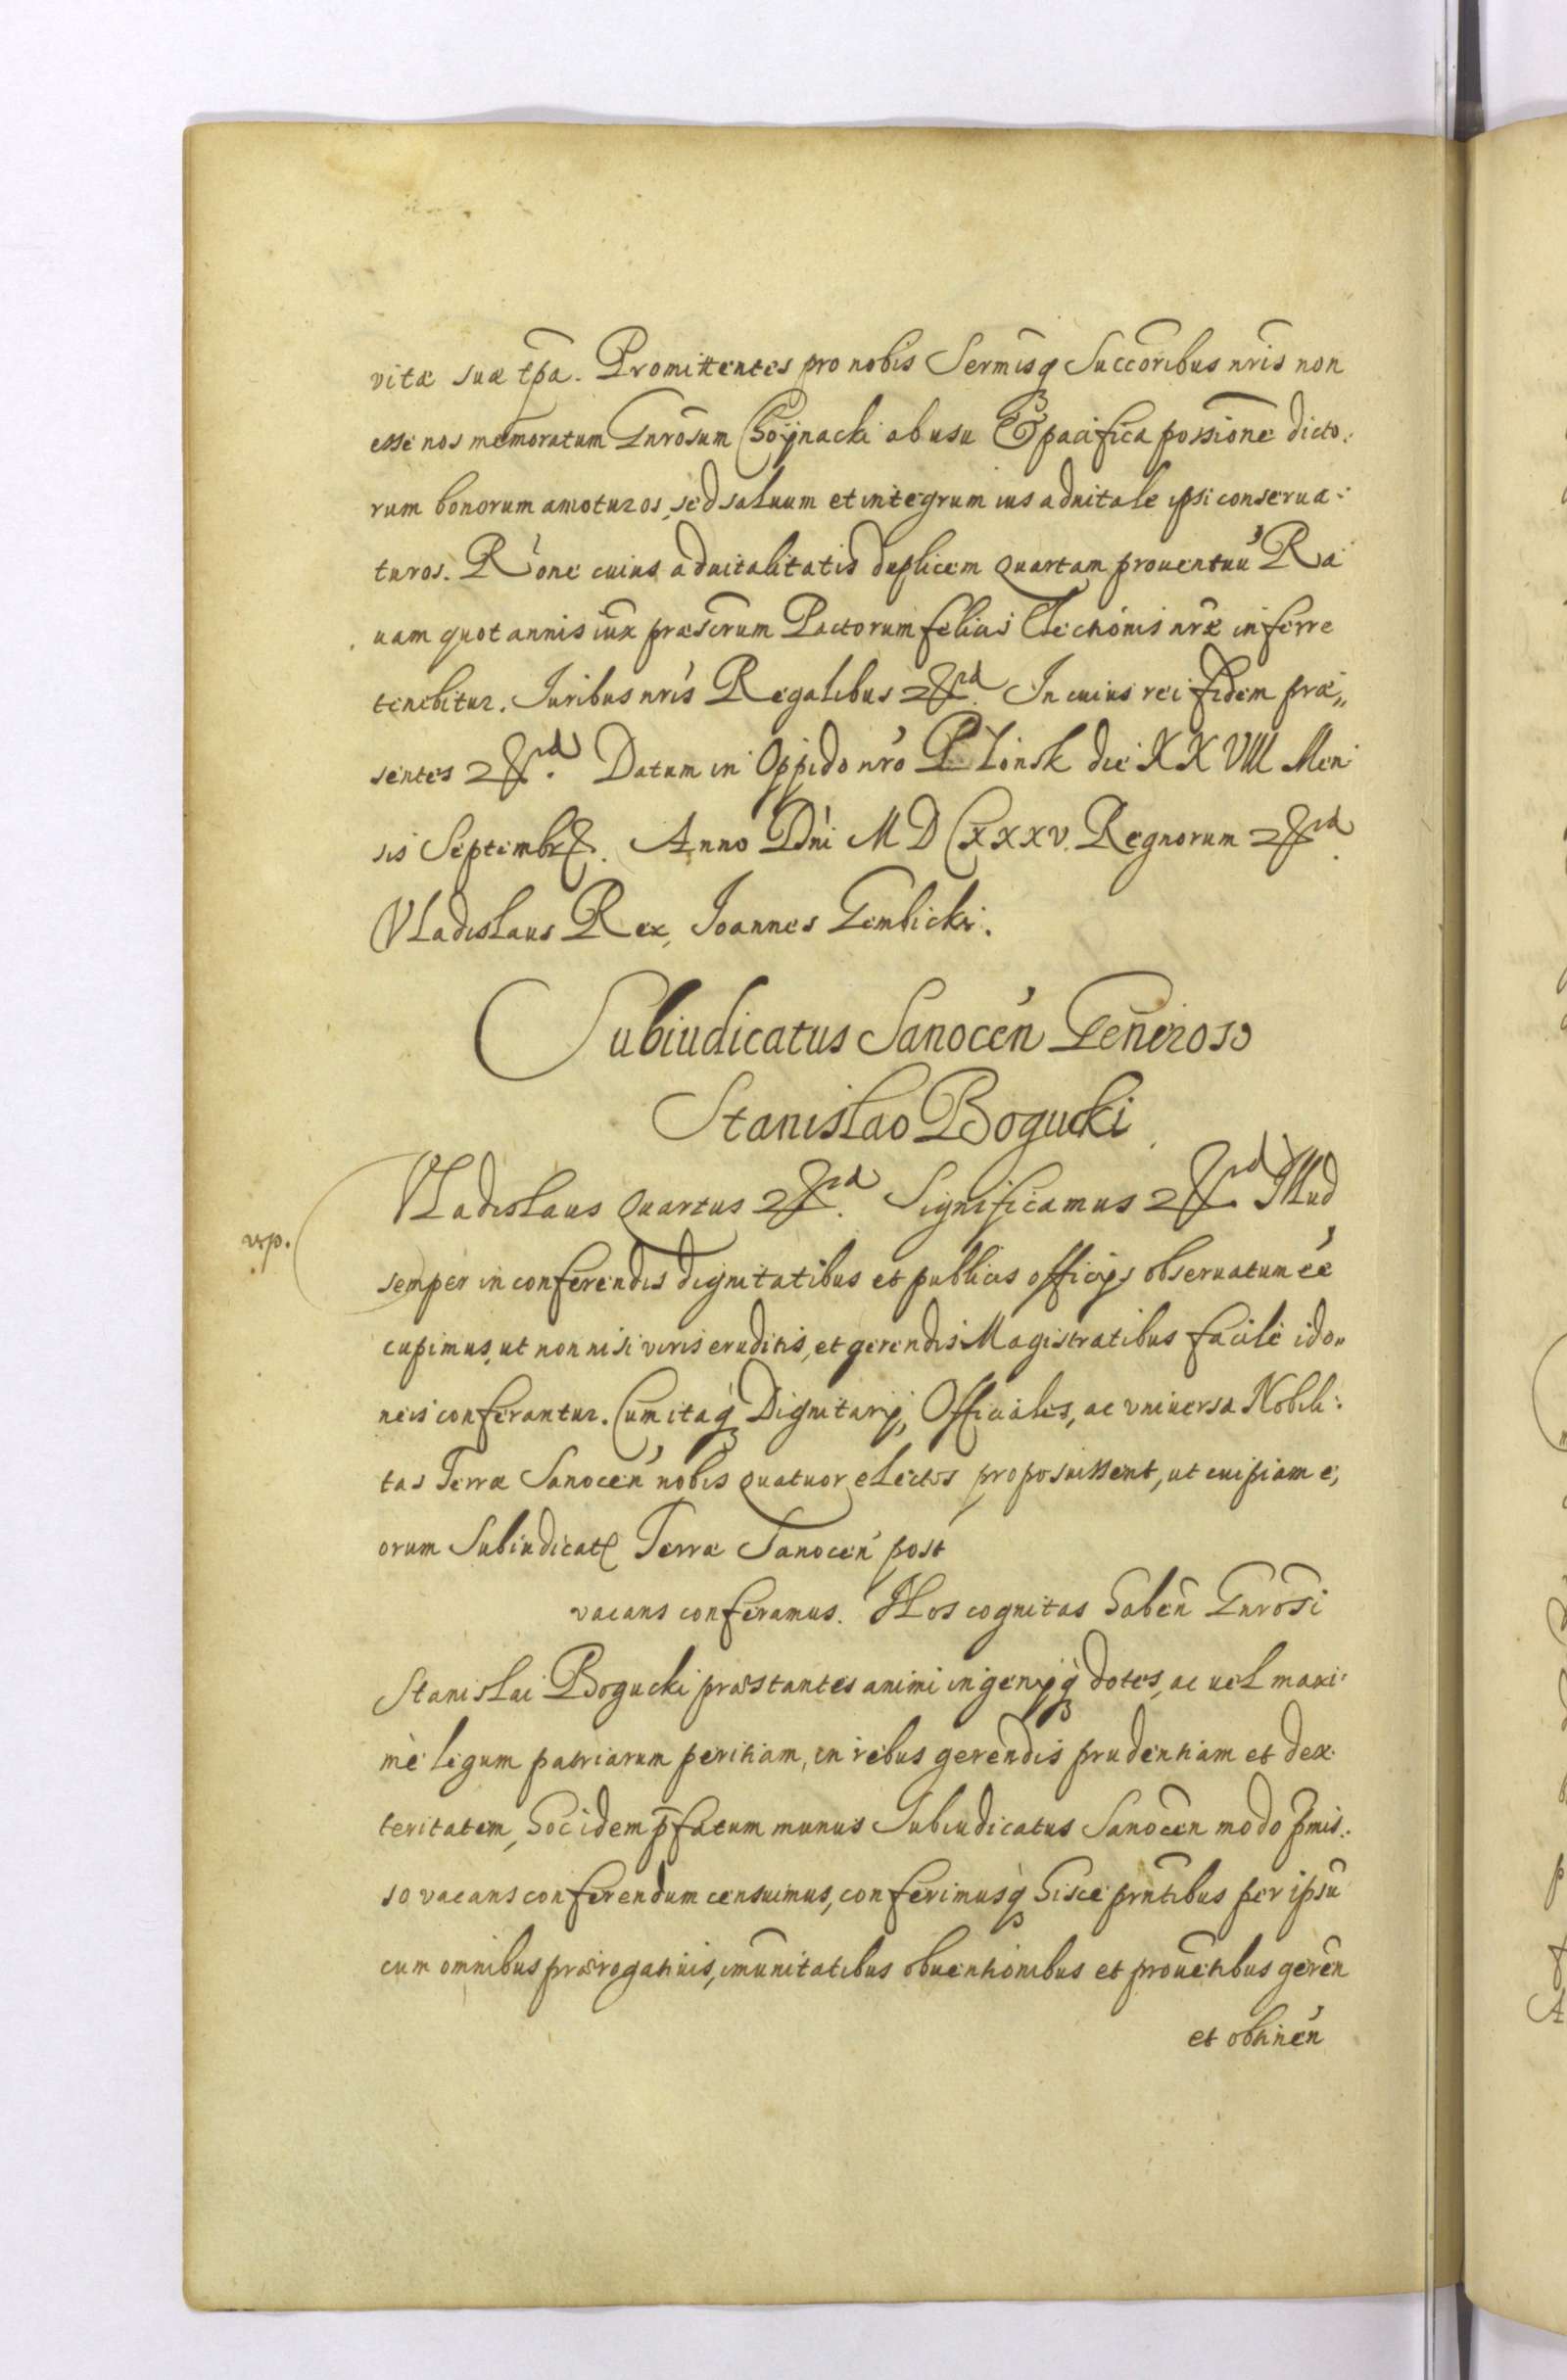 vitæ suæ tpa. Promittentes pro nobis Sermisq Succoribus nris non
esse nos memoratum Gnrosum Choÿnacki ab usu Et pacifica possione dicto:
rum bonorum amoturos, sed saluum et integrum ius aduitale ipsi conserua:
turos. Rone cuius aduitalitatis duplicem quartam prouentuu Ra
uam quotannis iux præscrum Pactorum felicis Electionis nræ inferre
tenebitur. Juribus nris Regalibus In cuius rei fidem præ„
sentes Datum in Oppido nro Plonsk die XXVIII Men
sis Septembr. Anno Dni MDCxxxv. Regnorum
Vladislaus Rex, Joannes Gembicki.
Subiudicatus Sanocen Generoso
Stanislao Bogucki
Vladislaus Quartus Significamus Illud
vp.
semper in conferendis dignitatibus et publicis officijs obseruatum ee
cupimus, ut non nisi viris eruditis, et gerendis Magistratibus facile ido„
neis conferantur. Cum itaq Dignitarij, Officiales, ac vniuersa Nobili:
tas Terræ Sanocen nobis quatuor electos proposuissent, ut cuipiam e,
orum Subiudicat Terræ Sanocen post
vacans conferamus. Nos cognitas haben Gnrosi
Stanislai Bogucki præstantes animi ingenijq dotes, ac uel maxi:
me legum patriarum peritiam, in rebus gerendis prudentiam et dex:
teritatem, hoc idem pfatum munus Subiudicatus Sanocen modo pmis:
so vacans conferendum censuimus, conferimusq hisce prntibus per ipsu
cum omnibus prærogatiuis, imunitatibus obuentionibus et prouetibus geren
et obtinen